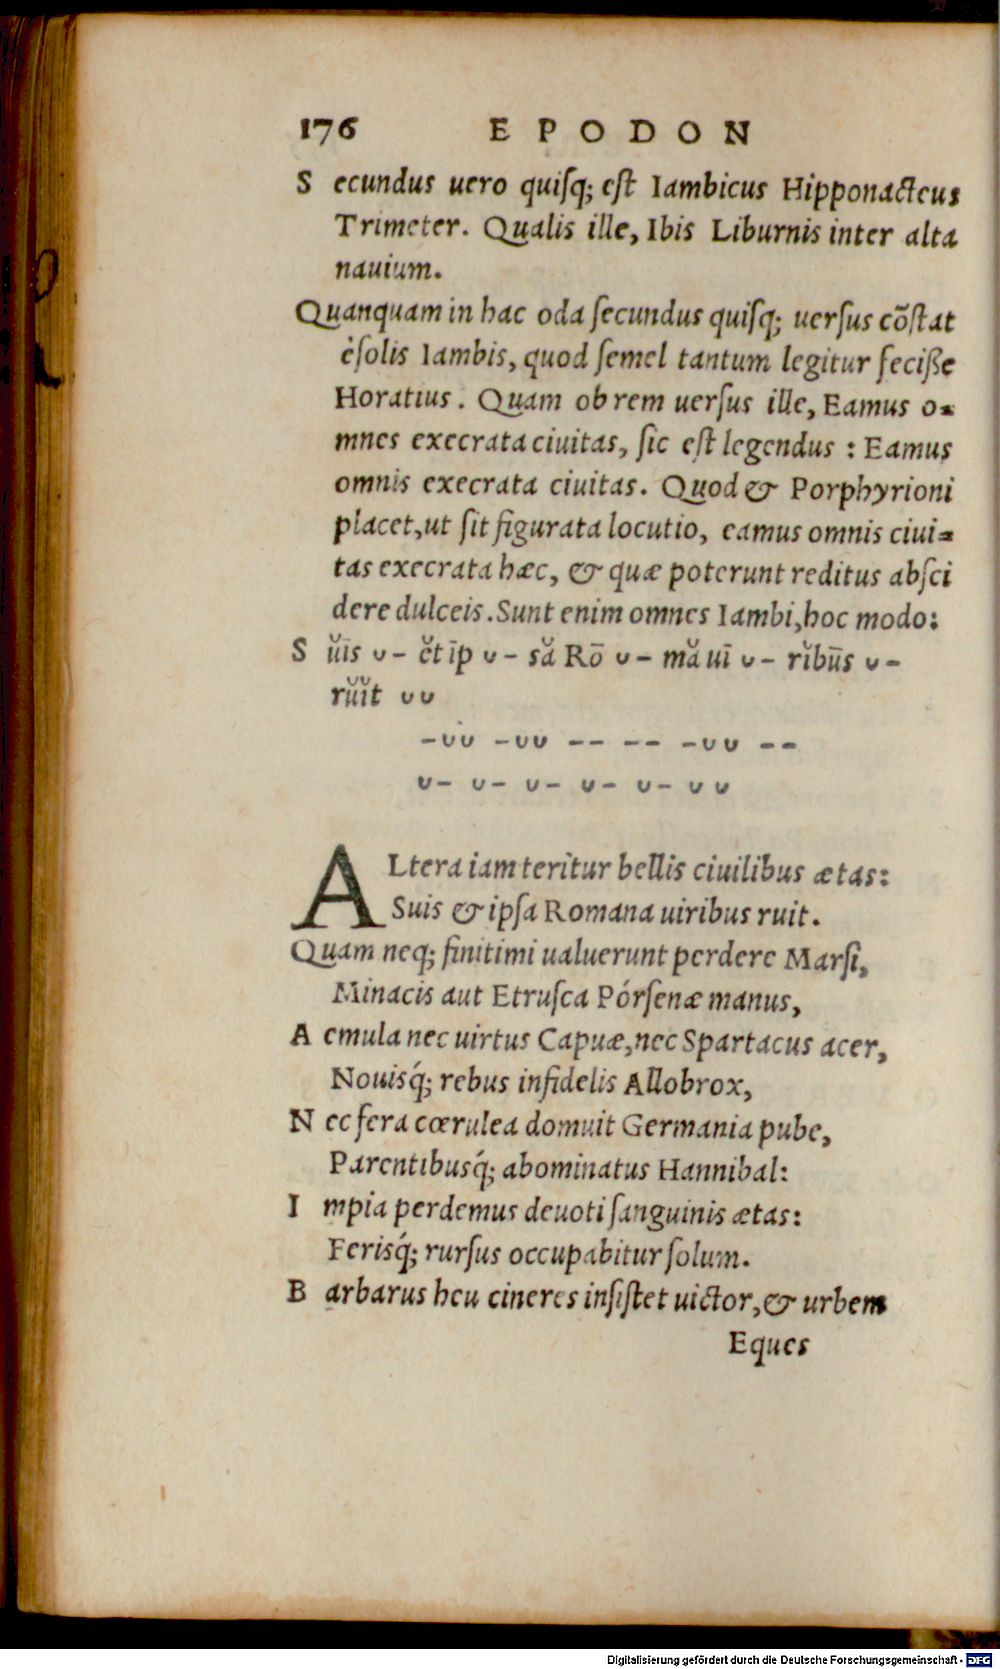 176 EPODON
Secundus uero quisq; est Iambicus Hipponacteus
Trimeter. Qualis ille, Ibis Liburnis inter alta
nauium.
Quanquam in hac oda ſecundus quiſq; uerſus cõſtat
è ſolis Iambis, quod ſemel tantum legitur feciſſe
Horatius. Quam ob rem uerſus ille, Eamus o=
mnes execrata ciuitas, ſic eſt legendus : Eamus
omnis execrata ciuitas. Quod & Porphyrioni
placet, ut ſit figurata locutio, eamus omnis ciui=
tas execrata hæc, & quæ poterunt reditus abſci
dere dulceis. Sunt enim omnes Iambi, hoc modo:
Sŭīs ᴗ – ĕt īp ᴗ – să Rō ᴗ – mă uī ᴗ – rĭbūs ᴗ –
rŭĭt ᴗᴗ
–ᴗᴗ –ᴗᴗ –– –– –ᴗᴗ ––
ᴗ– ᴗ– ᴗ– ᴗ– ᴗ– ᴗᴗ
ALtera iam terìtur bellis ciuilibus ætas:
Suis & ipſa Romana uiribus ruit.
Quam neq; finitimi ualuerunt perdere Marſi,
Minacis aut Etruſca Pórſenæ manus,
Aemula nec uirtus Capuæ, nec Spartacus acer,
Nouisq́; rebus infidelis Allobrox,
Nec fera cœrulea domuit Germania pube,
Parentibusq́; abominatus Hannibal:
Impia perdemus deuoti ſanguinis ætas:
Ferisq́; rurſus occupabitur ſolum.
Barbarus heu cineres inſiſtet uictor, & urbem
Eques
Digitalisierung gefördert durch die Deutsche Forschungsgemeinschaft - DFG